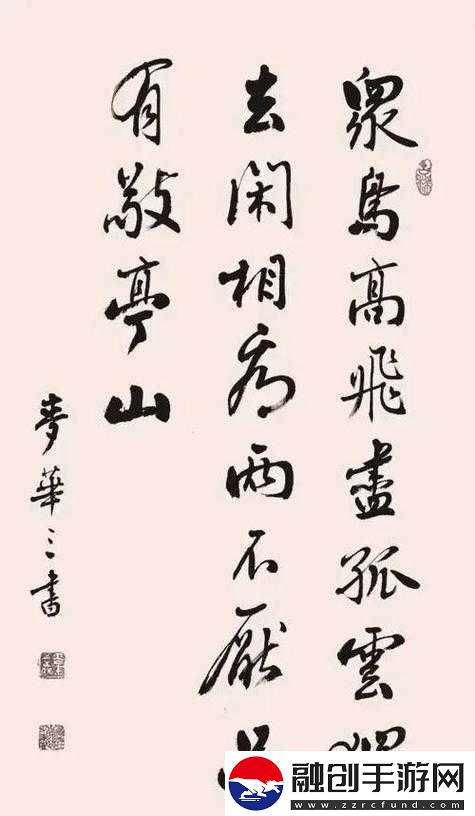 眾鳥高飛盡孤雲
去閑相看兩不厭只
有敬亭山
麥華三書
融创手游网
www.zzrcfund.com